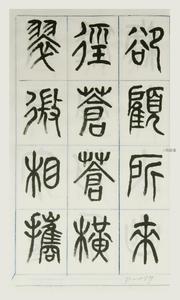 卻顧所來
徑蒼蒼橫
翠微相攜